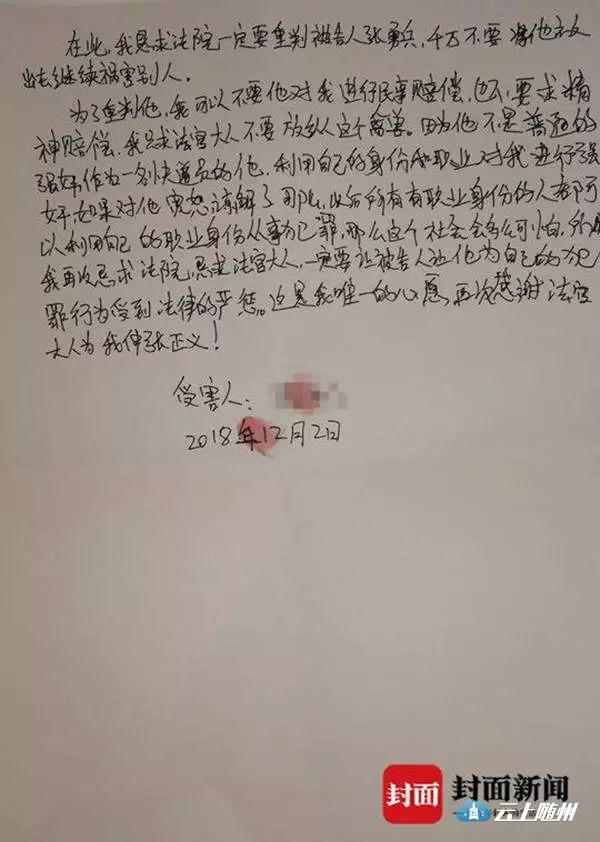 在此，我恳求法院一定要重判被告人张勇兵，千万不要将他放
出去继续祸害别人。
为了重判他，我可以不要他对我进行民事赔偿，也不要求精
神赔偿，我只求法官大人不要放纵这个禽兽。因为他不是普通的
强奸，作为一名快递员的他，利用自己的身份和职业对我进行强
奸，如果对他宽恕谅解了，那以后所有有职业身份的人都可
以利用自己的职业身份从事犯罪，那么这个社会会多么可怕，
我再次恳求法院，恳求法官大人，一定要让被告人让他为自己的犯
罪行为受到法律的严惩。这是我唯一的心愿，再次感谢法官
大人为我伸张正义！
受害人：
2018年12月2日
封面 封面新闻
云上随州